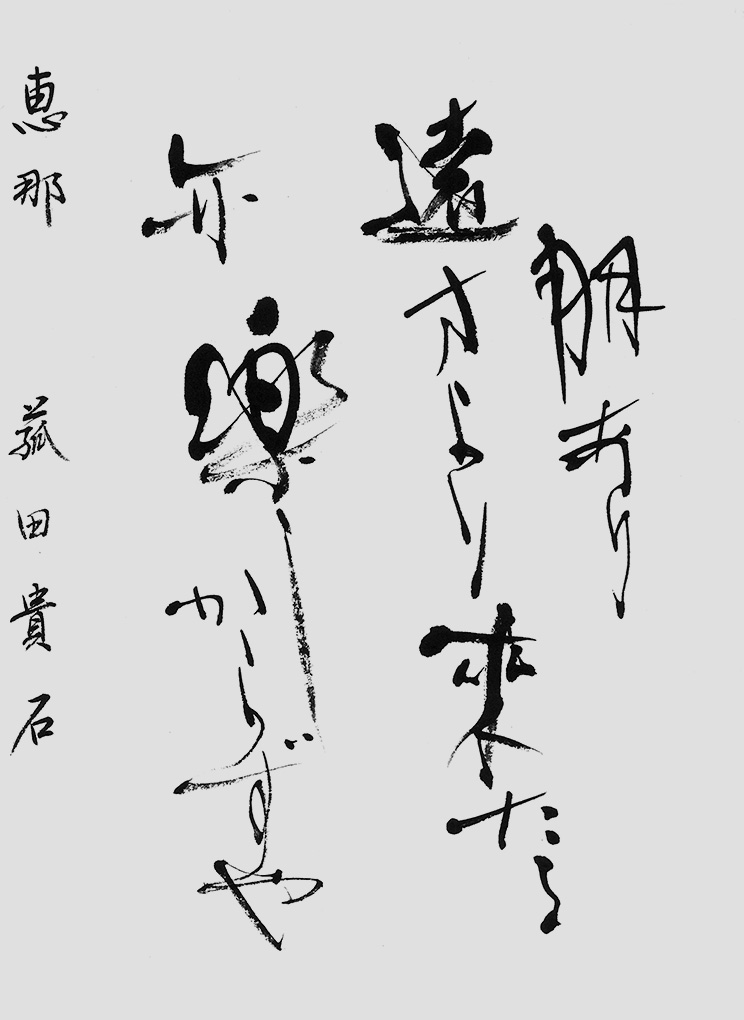 朋あり
遠方より来たる
亦楽しからずや
恵那 菰田貴石